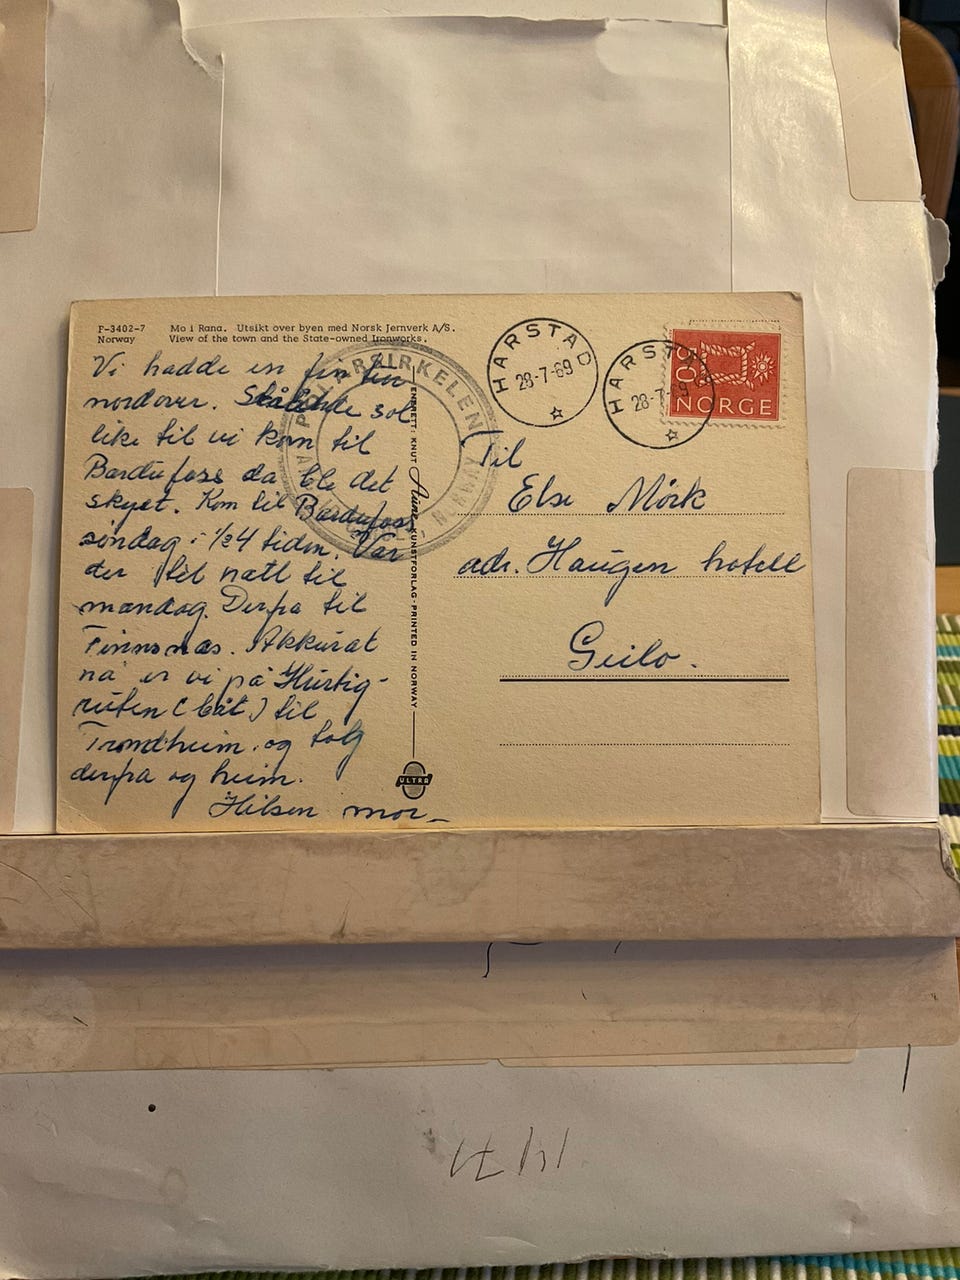 F-3402-7 Mo i Rana. Utsikt over byen med Norsk Jernverk A/S.
Norway View of the town and the State-owned Ironworks.
Vi hadde en fin tur
nordover. Strålende sol
like til vi kom til
Bardufoss da ble det
skyet. Kom til Bardufoss
søndag i 1/2 4 tiden. Var
der til natt til
mandag. Derpa til
Finnsnæs. Akkurat
nå er vi på Hurtig-
ruten (båt) til
Trondheim og tolg
derpa og heim.
Hilsen mor
POLARSIRKELEN
NORWAY
ENERETT: KNUT Aune KUNSTFORLAG - PRINTED IN NORWAY
ULTRA
HARSTAD
28-7-69
HARSTAD
28-7-69
60
NORGE
Til
Else Mörk
adr. Haugen hotell
Geilo.